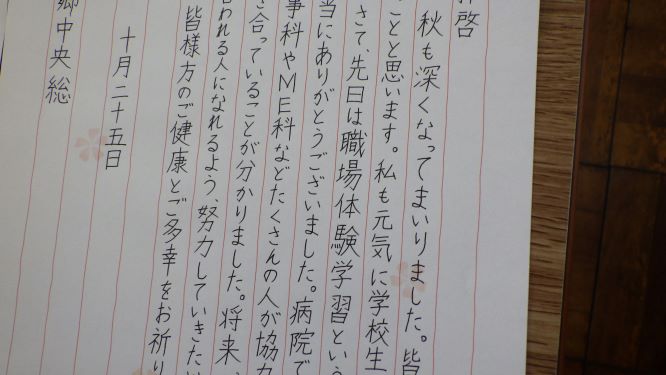 拝啓
秋も深くなってまいりました。皆
ことと思います。私も元気に学校生
さて、先日は職場体験学習という
当にありがとうございました。病院で
事科やME科などたくさんの人が協力
き合っていることが分かりました。将来、
われる人になれるよう、努力していきたい
皆様方のご健康とご多幸をお祈り
十月二十五日
郷中央総